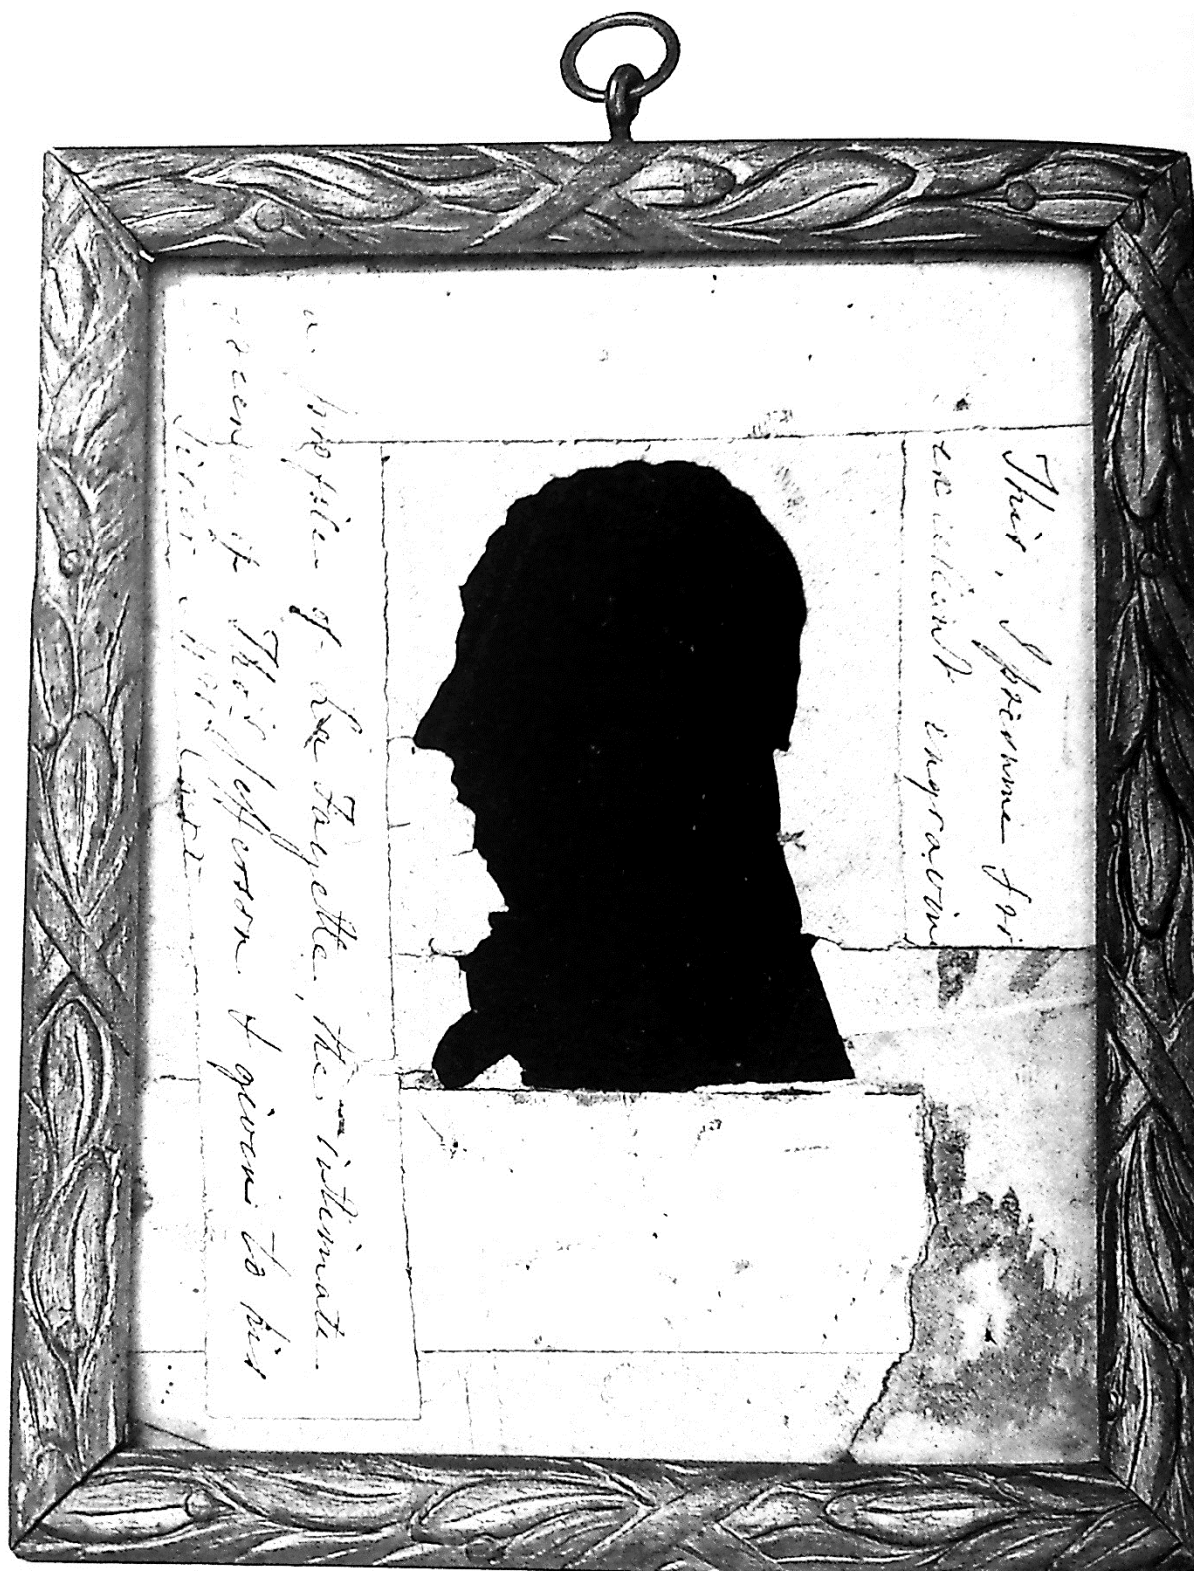 This, I presume for
excellent engravin
a profile of La Fayette, the intimate
of Tho:s Jefferson & given to his